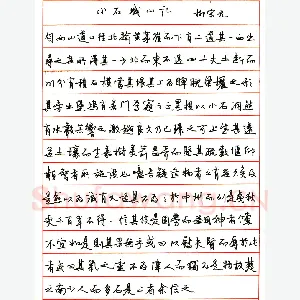 小石城山记 柳宗元
自西山道口径北踰黄茅岭而下有二道其一西出
寻之无所得其一少北而东不过四十丈土断而
川分有积石横当其垠其上为睥睨梁欐之形
其旁出堡坞有若门焉窥之正黑投以小石洞然
有水声其响之激越良久乃已环之可上望甚远
无土壤而生嘉树美箭益奇而坚其疏数偃仰
类智者所施设也噫吾疑造物者之有无久矣及
是愈以为诚有又怪其不为之于中州而列是夷狄
更千百年不得一售其伎是固劳而无用神者傥
不宜如是则其果无乎或曰以慰夫贤而辱于此者
或曰其气之灵不为伟人而独为是物故楚
之南少人而多石是二者余未信之